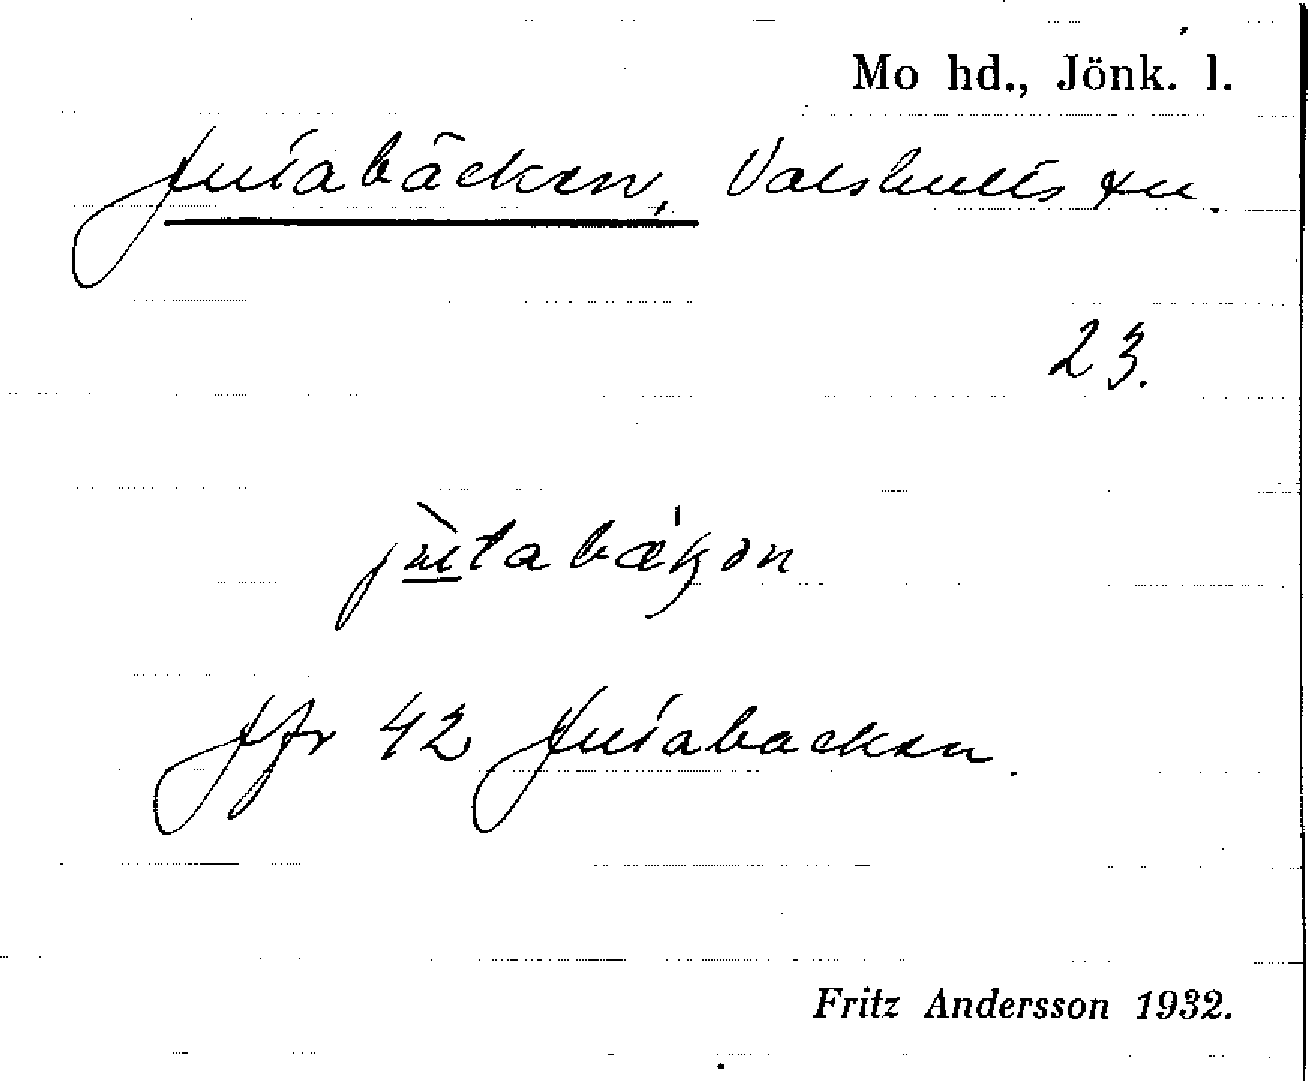 Mo hd., Jönk. l.
Jutabäcken, Valshults sn.
23.
jùtabækən
Jfr 42 Jutabacken.
Fritz Andersson 1932.